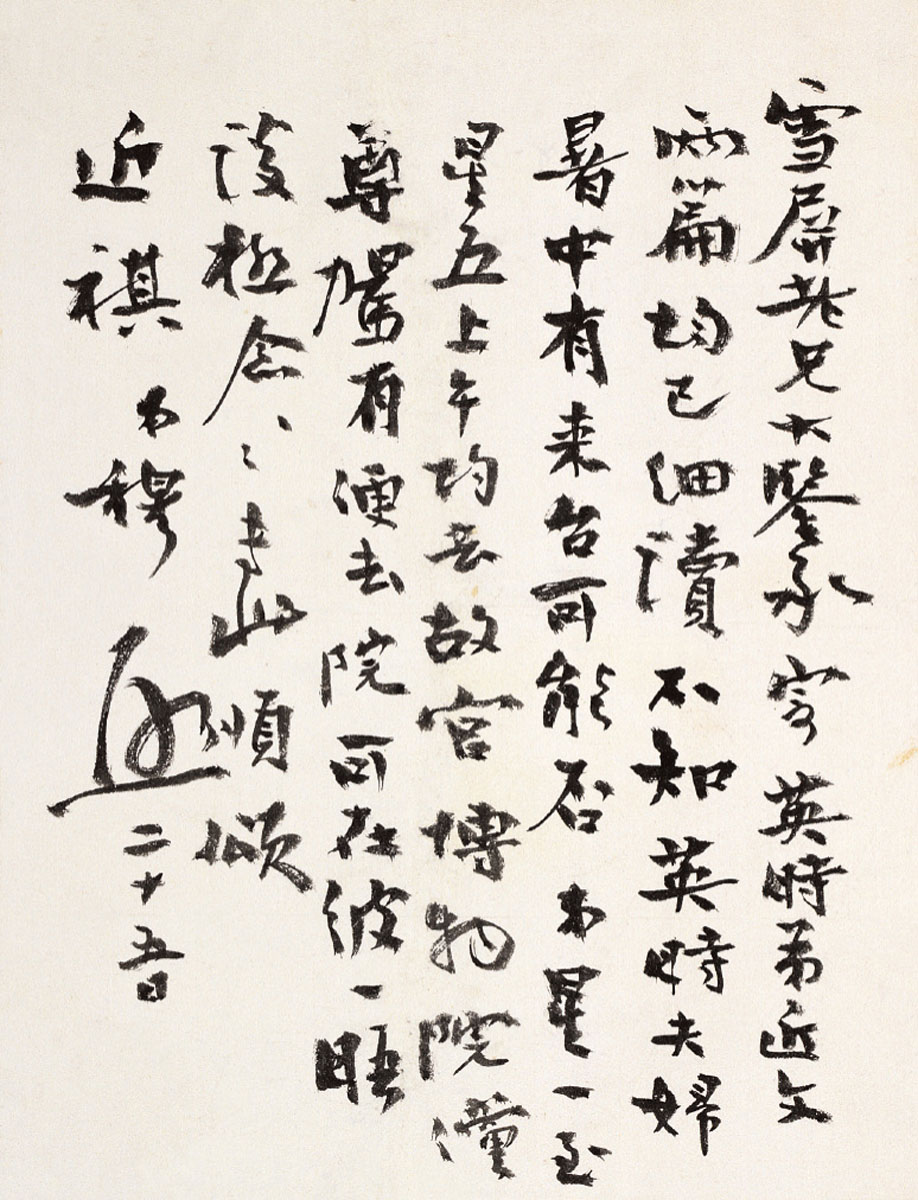 雪屏老兄大鑒承寄英時弟近文
兩篇均已細讀不知英時夫婦
暑中有来台可能否弟星一至
星五上午均去故宮博物院儻
尊駕有便去院可在彼一晤
談極念〻專此順頌
近祺 弟穆 二十五日